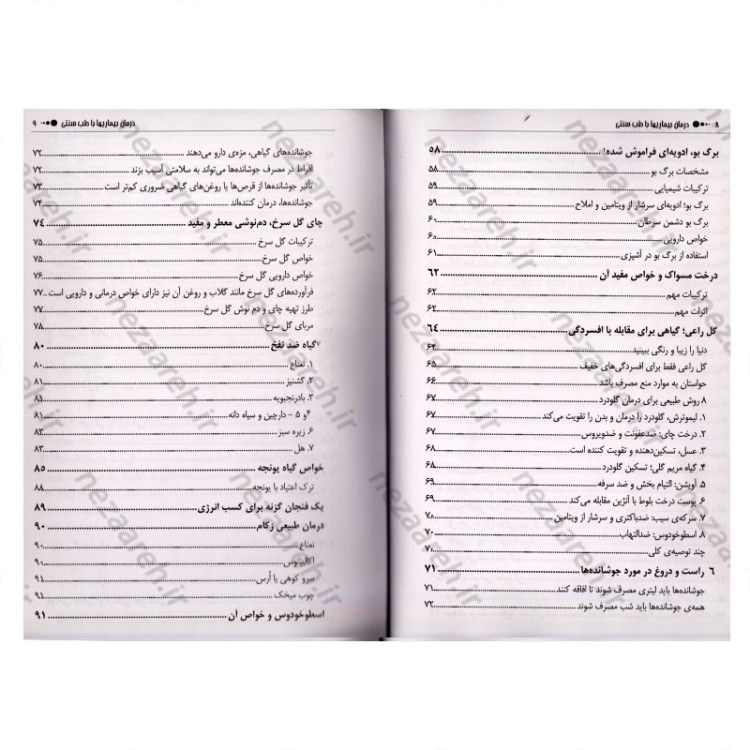 ۸ درمان بیماریها با طب سنتی
برگ بو، ادویه‌ای فراموش شده! ۵۸
مشخصات برگ بو ۵۸
ترکیبات شیمیایی ۵۹
برگ بو؛ ادویه‌ای سرشار از ویتامین و املاح ۵۹
برگ بو دشمن سرطان ۶۰
خواص دارویی ۶۰
استفاده از برگ بو در آشپزی ۶۱
درخت مسواک و خواص مفید آن ۶۲
ترکیبات مهم ۶۲
اثرات مهم ۶۲
گل راعی؛ گیاهی برای مقابله با افسردگی ۶۴
دنیا را زیبا و رنگی ببینید ۶۴
گل راعی فقط برای افسردگی‌های خفیف ۶۵
حواستان به موارد منع مصرف باشد ۶۶
۸ روش طبیعی برای درمان گلودرد ۶۷
۱. لیموترش، گلودرد را درمان و بدن را تقویت می‌کند ۶۷
۲. درخت چای: ضدعفونت و ضدویروس ۶۷
۳. عسل، تسکین‌دهنده و تقویت کننده است ۶۸
۴. گیاه مریم گلی؛ تسکین گلودرد ۶۸
۵. آویشن: التیام بخش و ضد سرفه ۶۹
۶. پوست درخت بلوط با آنژین مقابله می‌کند ۶۹
۷. سرکه‌ی سیب: ضدباکتری و سرشار از ویتامین ۶۹
۸. اسطوخودوس: ضدالتهاب ۷۰
چند توصیه‌ی کلی ۷۰
۶ راست و دروغ در مورد جوشانده‌ها ۷۱
جوشانده‌ها باید لیتری مصرف شوند تا افاقه کنند ۷۱
همه‌ی جوشانده‌ها باید شب مصرف شوند ۷۲
درمان بیماریها با طب سنتی ۹
جوشانده‌های گیاهی، مزه‌ی دارو می‌دهند ۷۲
افراط در مصرف جوشانده‌ها می‌تواند به سلامتی آسیب بزند ۷۲
تأثیر جوشانده‌ها از قرص‌ها یا روغن‌های گیاهی ضروری کم‌تر است ۷۳
جوشانده‌ها، درمان کننده‌اند ۷۳
چای گل سرخ، دم‌نوشی معطر و مفید ۷۴
ترکیبات گل سرخ ۷۵
خواص گل سرخ ۷۵
خواص دارویی گل سرخ ۷۶
فرآورده‌های گل سرخ مانند گلاب و روغن آن نیز دارای خواص درمانی و دارویی است ۷۷
طرز تهیه چای و دم نوش گل سرخ ۷۷
مربای گل سرخ ۷۸
۷گیاه ضد نفخ ۸۰
۱. نعناع ۸۰
۲. گشنیز ۸۱
۳. بادرنجبویه ۸۱
۴و ۵ - دارچین و سیاه دانه ۸۱
۶. زیره سبز ۸۲
۷. هل ۸۳
خواص گیاه یونجه ۸۵
ترک اعتیاد با یونجه ۸۸
یک فنجان گزنه برای کسب انرژی ۸۹
درمان طبیعی زکام ۹۰
نعناع ۹۰
اکالیپتوس ۹۰
سرو کوهی یا اُرس ۹۱
چوب میخک ۹۱
اسطوخودوس و خواص آن ۹۱
nezaareh.ir